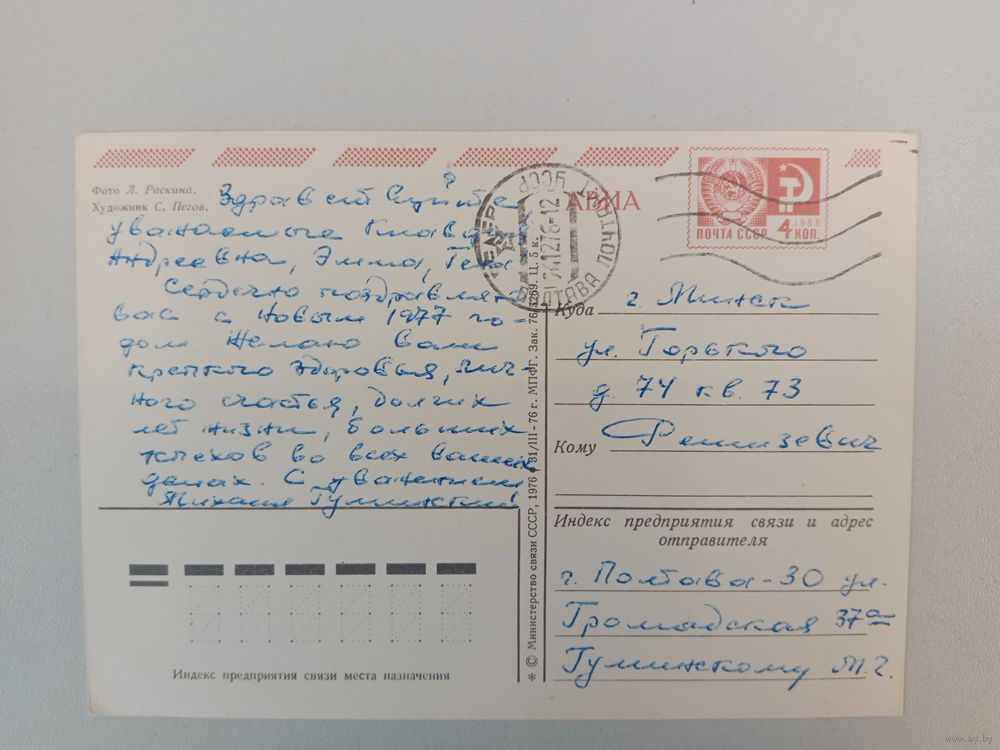 Фото Л. Раскина.
Художник С. Пегов.
Здравствуйте
уважаемые Клавдия
Андреевна, Эмма, Гена
Сердечно поздравляю
вас с Новым 1977 го-
дом Желаю Вам
крепкого здоровья, лич-
ного счастья, долгих
лет жизни, больших
успехов во всех ваших
делах. С уважением
Михаил Гуминский
АВИА
ПОЧТА СССР
4 КОП.
1966
УССР
ПОЛТАВА
ПОЧТАМТ
24127612
Куда г. Минск
ул. Горького
д. 74 кв. 73
Кому Фемизевич
Индекс предприятия связи и адрес
отправителя
г. Полтава-30 ул.
Громадская 37а
Гуминскому М.Г.
Индекс предприятия связи места назначения
* © Министерство связи СССР, 1976 31/III-76 г. МПФГ. Зак. 76-5269. Ц. 5 к.
www.ay.by